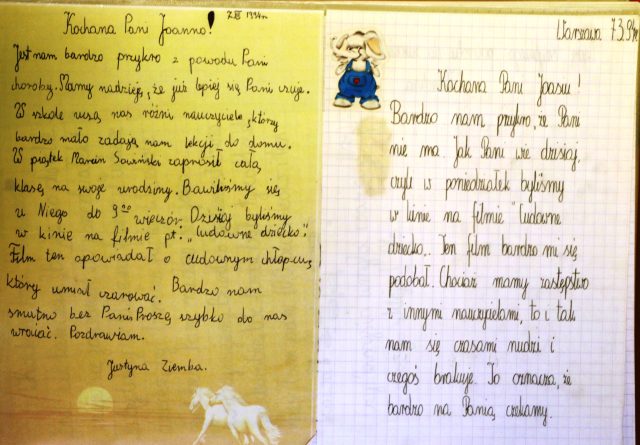 7 III 1994r
Kochana Pani Joanno!
Jest nam bardzo przykro z powodu Pani
choroby. Mamy nadzieję, że już lepiej się Pani czuje.
W szkole uczą nas różni nauczyciele, którzy
bardzo mało zadają nam lekcji do domu.
W piątek Marcin Sowiński zaprosił całą
klasę na swoje urodziny. Bawiliśmy się
u Niego do 9⁰⁰ wieczór. Dzisiaj byliśmy
w kinie na filmie pt: „Cudowne dziecko".
Film ten opowiadał o cudownym chłopcu,
który umiał czarować. Bardzo nam
smutno bez Pani. Proszę szybko do nas
wrócić. Pozdrawiam.
Justyna Ziemba.
Warszawa 7.3.94r
Kochana Pani Joasiu!
Bardzo nam przykro, że Pani
nie ma. Jak Pani wie dzisiaj
czyli w poniedziałek byliśmy
w kinie na filmie "Cudowne
dziecko„. Ten film bardzo mi się
podobał. Chociaż mamy zastępstwo
z innymi nauczycielami, to i tak
nam się czasami nudzi i
czegoś brakuje. To oznacza, że
bardzo na Panią czekamy.